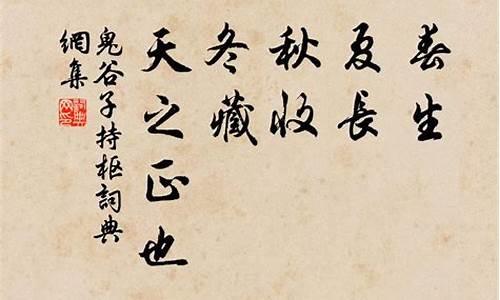 春生
夏長
秋收
冬藏
天之正也
鬼谷子持枢詞典
網集